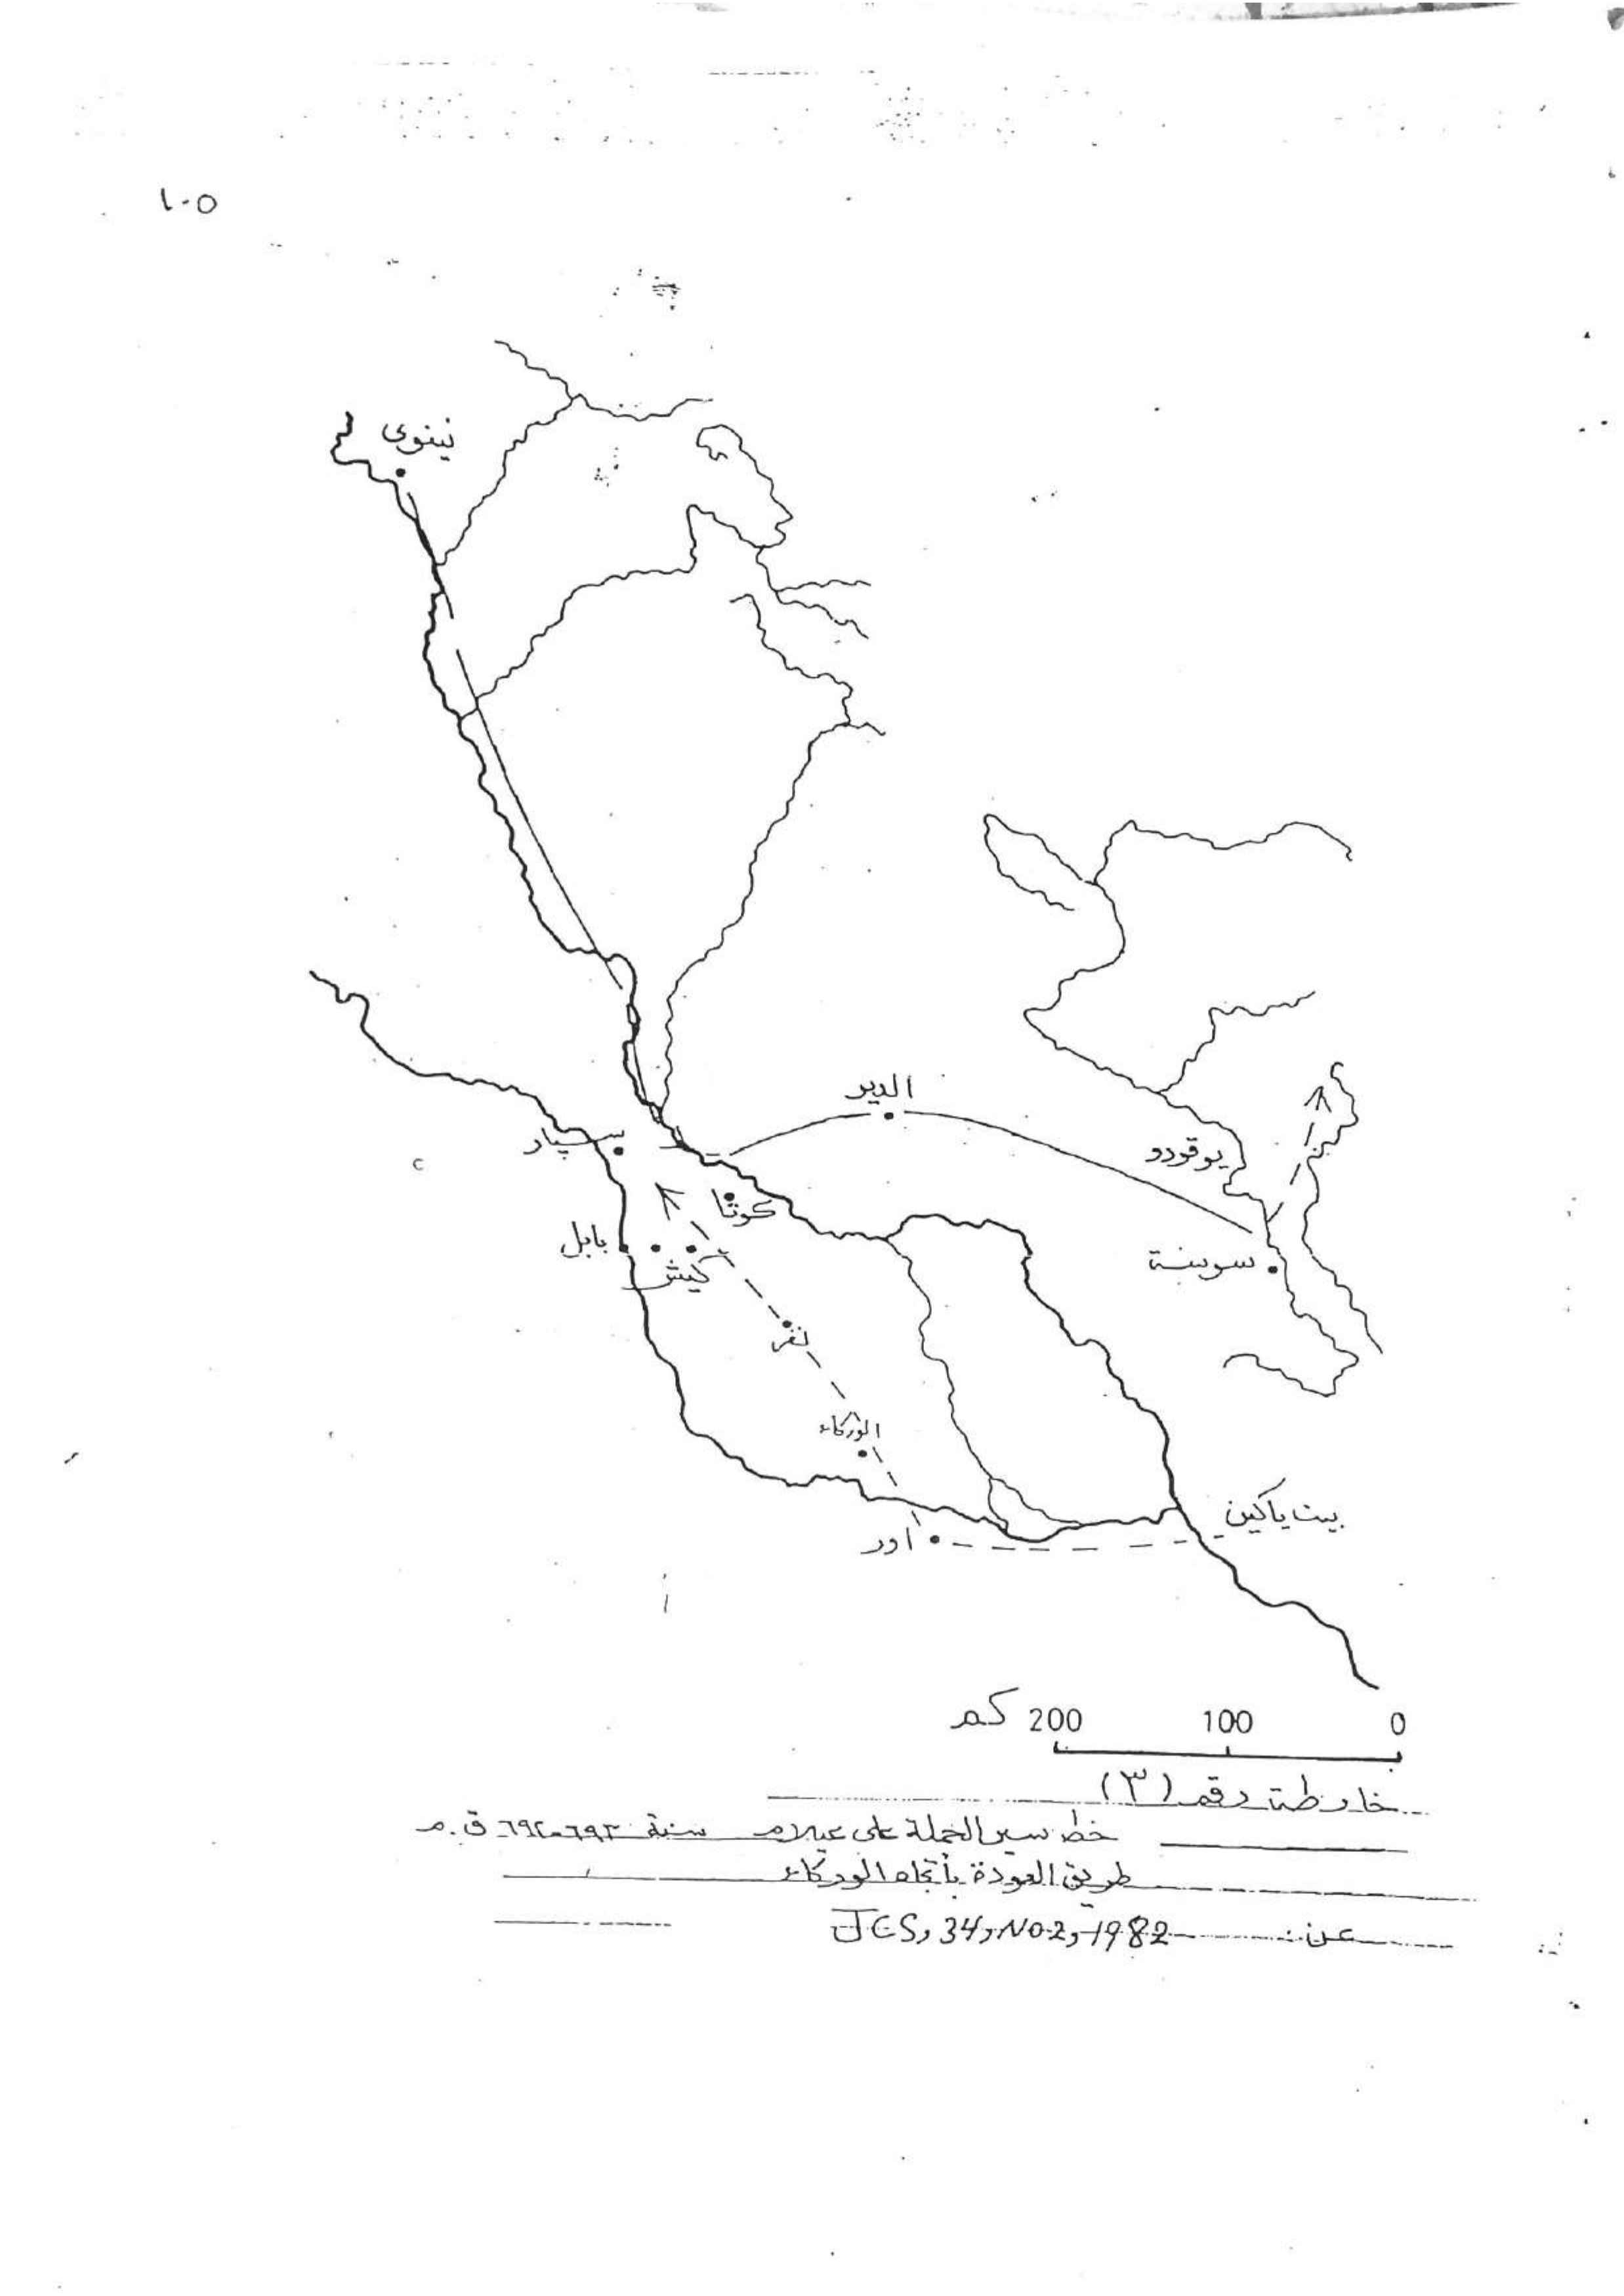 ١٠٥
نينوى
الدير
سپار
يوقودو
كوثا
بابل
كيش
سوسنة
نفر
الوركاء
بيت ياكين
اور
كم 200 100 0
خارطة رقم (٣)
خط سير الحملة على عيلام سنة ٦٩٣-٦٩٢ ق.م
طريق العودة بأتجاه الوركاء
عن: JCS, 34, NO.2, 1982